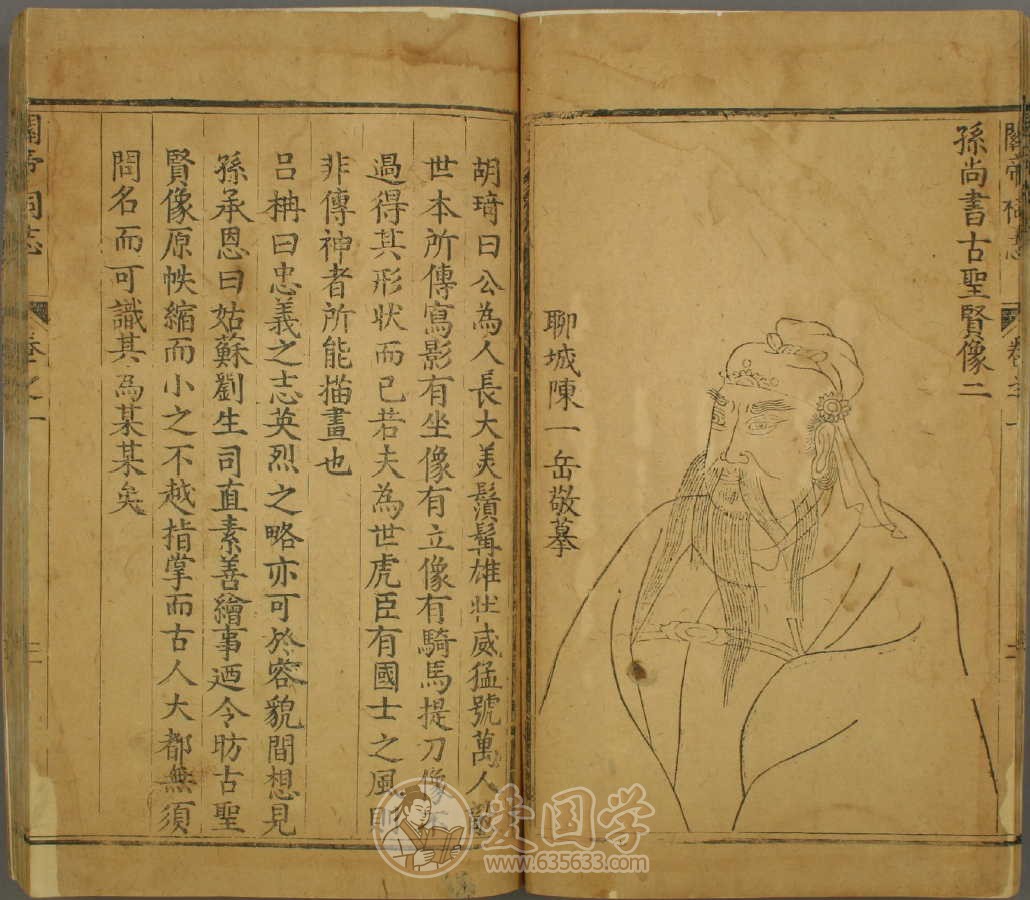 孫尚書古聖賢像二
聊城陳一岳敬摹
胡琦曰公為人長大美鬚髯雄壯威猛號萬人敵
世本所傳寫影有坐像有立像有騎馬提刀像
過得其形狀而已若夫為世虎臣有國士之風則
非傳神者所能描畫也
呂柟曰忠義之志英烈之略亦可於容貌間想見
孫承恩曰姑蘇劉生司直素善繪事迺令昉古聖
賢像原帙縮而小之不越指掌而古人大都無須
問名而可識其為某某矣
關帝祠志
卷之一
三
愛国学
www.635633.com